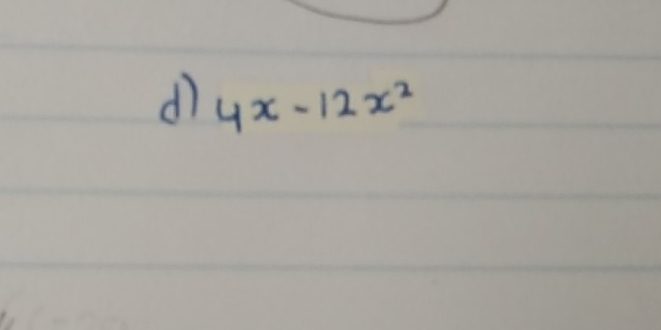 d) 4x - 12x²